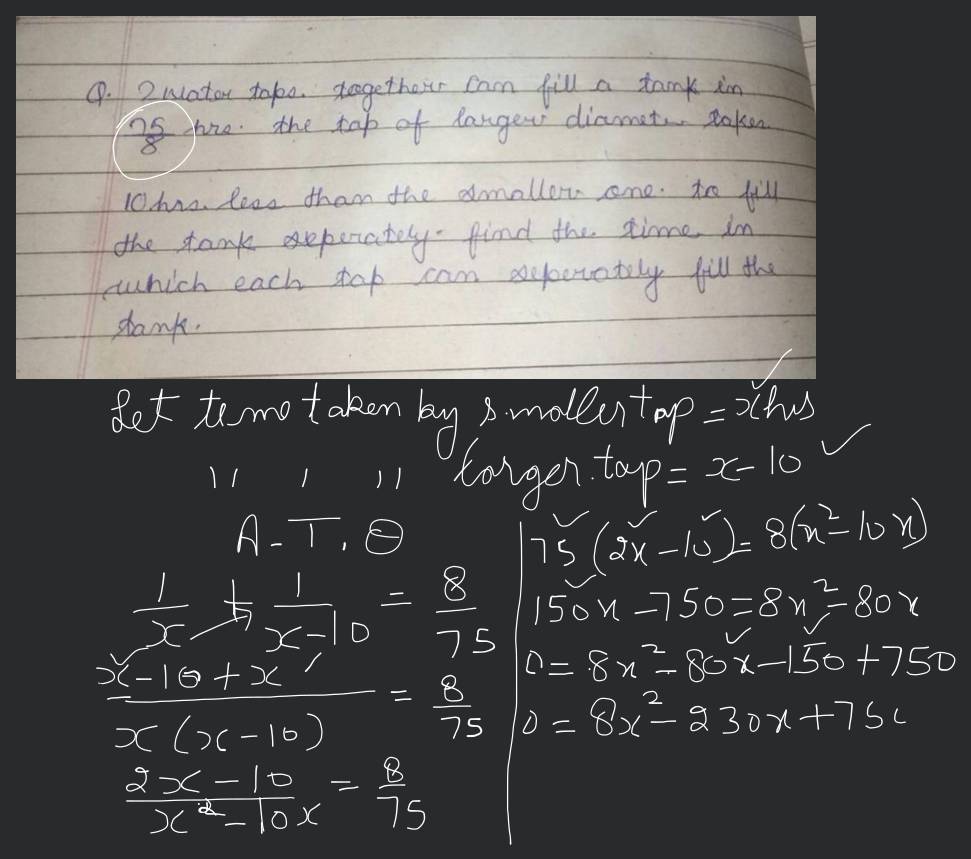 Q. 2 water taps. togetherr can fill a tank in
75/8 hrs. the tap of larger diameter takes
10 hrs. less than the smaller one. to fill
the tank seperately. find the time in
which each tap can seperately fill the
tank.
Let time taken by smaller tap = x hrs
" ' " larger tap = x - 10
A.T.Q
1/x + 1/x-10 = 8/75
x-10+x / x(x-10) = 8/75
2x-10 / x²-10x = 8/75
75(2x-10) = 8(x²-10x)
150x-750=8x²-80x
0=8x²-80x-150+750
0=8x²-230x+750